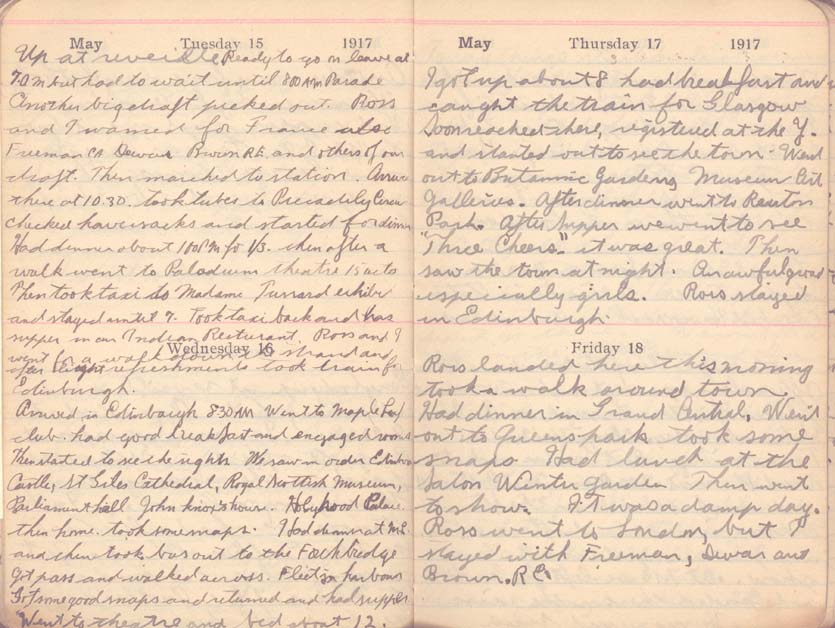 May Tuesday 15 1917
Up at reveille Ready to go on leave at
7.0 M but had to wait until 8.00 AM Parade
Another big draft picked out. Ross
and I warned for France also
Freeman CA Dewar Brown R.E. and others of our
draft. Then marched to station. Arrive
there at 10.30. took tubes to Piccadilly Circus
checked haversacks and started for dinner
Had dinner about 1.00 PM for 1/3. then after a
walk went to Paladium theatre 15 acts
Then took taxi to Madame Tussard exhibit
and stayed until 7. Took taxi back and has
supper in an Indian Resturant. Ross and I
went for a walk around the strand and
after light refreshments took train for
Edinburgh.
Wednesday 16
Arrived in Edinburgh 8.30 AM Went to Maple Leaf
club. had good breakfast and engaged rooms
Then started to see the sights. We saw in order Edinburgh
Castle, St Giles Cathedral, Royal Scottish Museum,
Parliament hall John Knox's house. Holyhood Palace.
then home. took some snaps. Had dinner at M.L.
and then took bus out to the Forthbridge
Got pass and walked across. Fleet in harbour
Got some good snaps and returned and had supper
Went to theatre and bed about 12.
May Thursday 17 1917
I got up about 8 had breakfast and
caught the train for Glasgow
Soon reached there, registered at the Y.
and started out to see the town. Went
out to Butannic Gardens, Museum Art
Galleries. After dinner went to
Park. After supper we went to see
"Three Cheers". it was great. Then
saw the town at night. An awful crowd
especially girls. Ross stayed
in Edinburgh.
Friday 18
Ross landed here this morning
took a walk around town.
Had dinner in Grand Central. Went
out to Queens park took some
snaps Had lunch at the
Salon Winter Garden Then went
to show. It was a damp day.
Ross went to London, but I
stayed with Freeman, Dewar and
Brown. R E.